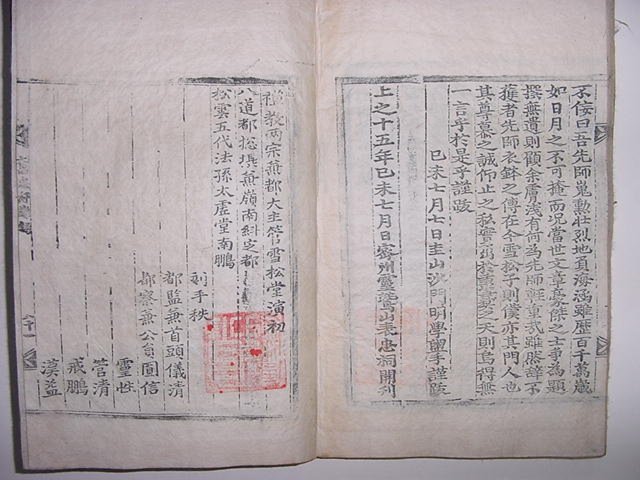 不侫曰吾先師嵬勳壯烈地負海涵雖歷百千萬歲
如日月之不可掩而况當世文章豪傑之士爭為題
撰無遺則顧余膚淺有何為先師輕重哉雖然辞不
獲者先師衣鉢之傳在今雪松子則僕亦其門人也
其尊慕之誠仰止之私實出於之天則烏得無
一言乎於是乎謹跋
己未七月七日圭山沙門明學盥手謹跋
上之十五年己未七月日密州靈鷲山表忠祠開刊
禪敎兩宗兼都大主管雪松堂演初
八道都摠攝兼嶺南糾正都
松雲五代法孫太虛堂南鵬
刻手秩
都監兼首頭儀清
都察兼公員圓信
靈性
管清
戒鵬
漢益